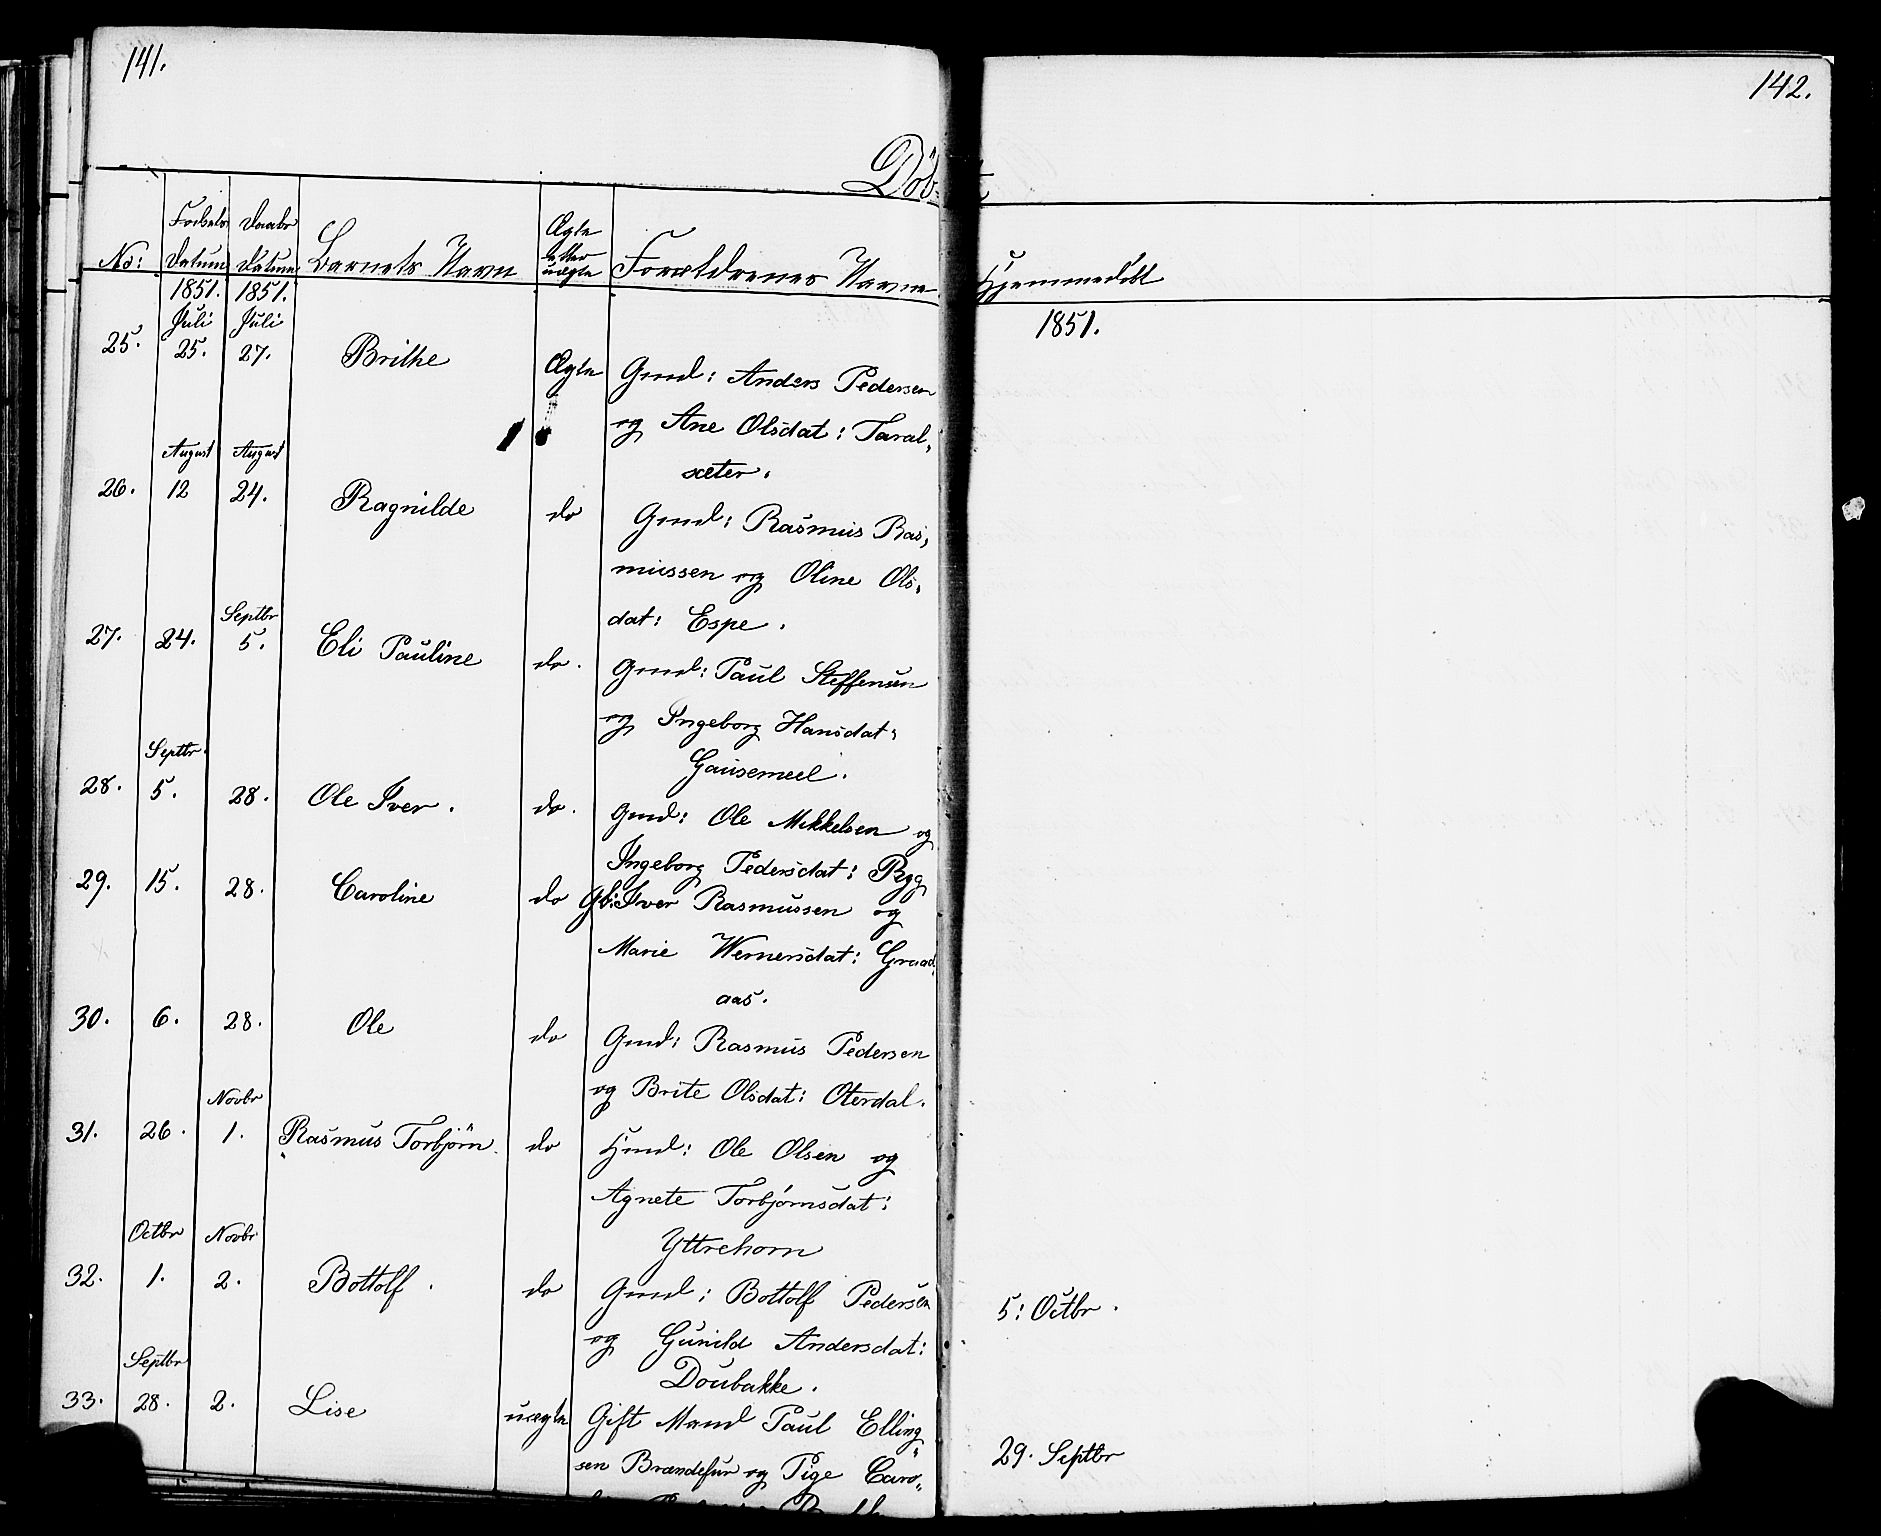 141.
142.
Döbt
No: Fødsels Datum Daabs Datum Barnets Navn Ægte eller uægte Forældrenes Navne Hjemmedöbt
1851. 1851. 1851.
Juli Juli
25. 25. 27. Brithe Ægte Gmd: Anders Pedersen
og Ane Olsdat: Taral„
sæter.
August August
26. 12 24. Ragnilde do Gmd: Rasmus Ras„
mussen og Oline Ols„
dat: Espe.
Septbr
27. 24. 5. Eli Pauline do. Gmd: Paul Steffensen
og Ingeborg Hansdat:
Gausemeel.
Septbr.
28. 5. 28. Ole Iver. do. Gmd: Ole Mikkelsen og
Ingeborg Pedersdat: Ryg
29. 15. 28. Caroline do Gb: Iver Rasmussen og
Marie Wernersdat: Graad„
aas.
30. 6. 28. Ole do Gmd: Rasmus Pedersen
og Brite Olsdat: Oterdal.
Novbr
31. 26. 1. Rasmus Torbjörn. do Hmd: Ole Olsen og
Agnete Torbjörnsdat:
Yttrehorn
Octbr Novbr
32. 1. 2. Bottolf. do Gmd: Bottolf Pedersen 5: Octbr.
og Gunild Andersdat:
Doubakke.
Septbr
33. 28. 2. Lise uægte Gift Mand Paul Elling„ 29. Septbr
sen Brændefur og Pige Caro„